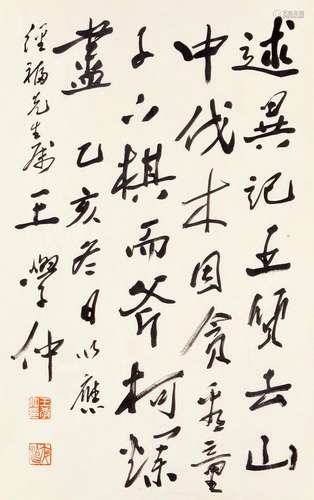 述異記王質去山
中伐木因貪看童
子下棋而斧柯爛
盡 乙亥冬日以應
經福先生属 王學仲